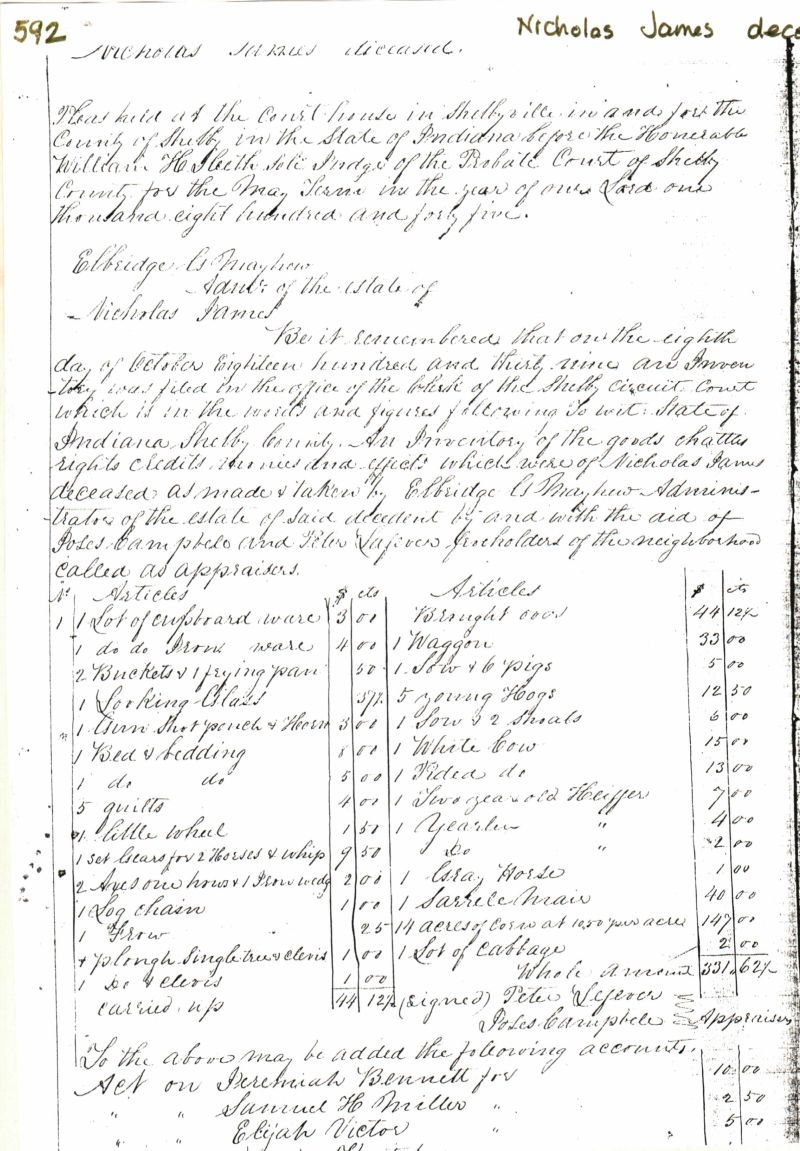 592
Nicholas James dece
Nicholas James diceased.
Pleas held at the Court house in Shelbyville in and for the
County of Shelby in the State of Indiana before the Honerable
William H Sleeth Sole Judge of the Probate Court of Shelby
County for the May Term in the year of our Lord one
thousand eight hundred and forty five.
Elbridge G Mayhew
Admr of the estate of
Nicholas James
Be it remembered that on the eighth
day of October Eighteen hundred and thirty nine an Inven
-tory was filed in the office of the Clerk of the Shelby Circuit Court
which is in the words and figures following To wit: State of
Indiana Shelby County. An Inventory of the goods chattles
rights credits monies and effects which were of Nicholas James
deceased as made & taken by Elbridge G Mayhew Adminis-
-trator of the estate of said decedent by and with the aid of
Poses Campbele and Peter Lefever freeholders of the neighborhood
called as appraisers.
No Articles $ cts Articles $ cts
1 1 Lot of cupboard ware 3 00 Brought over 44 12½
1 do do Iron ware 4 00 1 Waggon 33 00
2 Buckets & 1 frying pan 50 1 Sow & 6 pigs 5 00
1 Looking Glass 37½ 5 young Hogs 12 50
1 Gun Shot pouch & Horn 3 00 1 Sow & 2 Shoats 6 00
1 Bed & bedding 8 00 1 White Cow 15 00
1 do do 5 00 1 Pided do 13 00
5 quilts 4 00 1 Two year old Heiffer 7 00
1 little wheel 1 50 1 Yearlin " 4 00
1 set Gears for 2 Horses & whip 9 50 Do " 2 00
2 Axes one howe & 1 Iron wedg 2 00 1 Gray Horse 1 00
1 Log chain 1 00 1 Sarrele Mair 40 00
1 Frow 25 14 acres of Corn at 10.50 per acre 147 00
1 plough Singletree & clevis 1 00 1 Lot of Cabbage 2 00
1 Do & clevis 1 00 Whole Amount 331.62½
carried up 44 12½ (signed) Peter Lefever
Poses Campbele Appraisers
To the above may be added the following accounts.
Act on Jeremiah Bennett for 10.00
" " Samuel H Miller " 2 50
" " Elijah Victor " 5 00